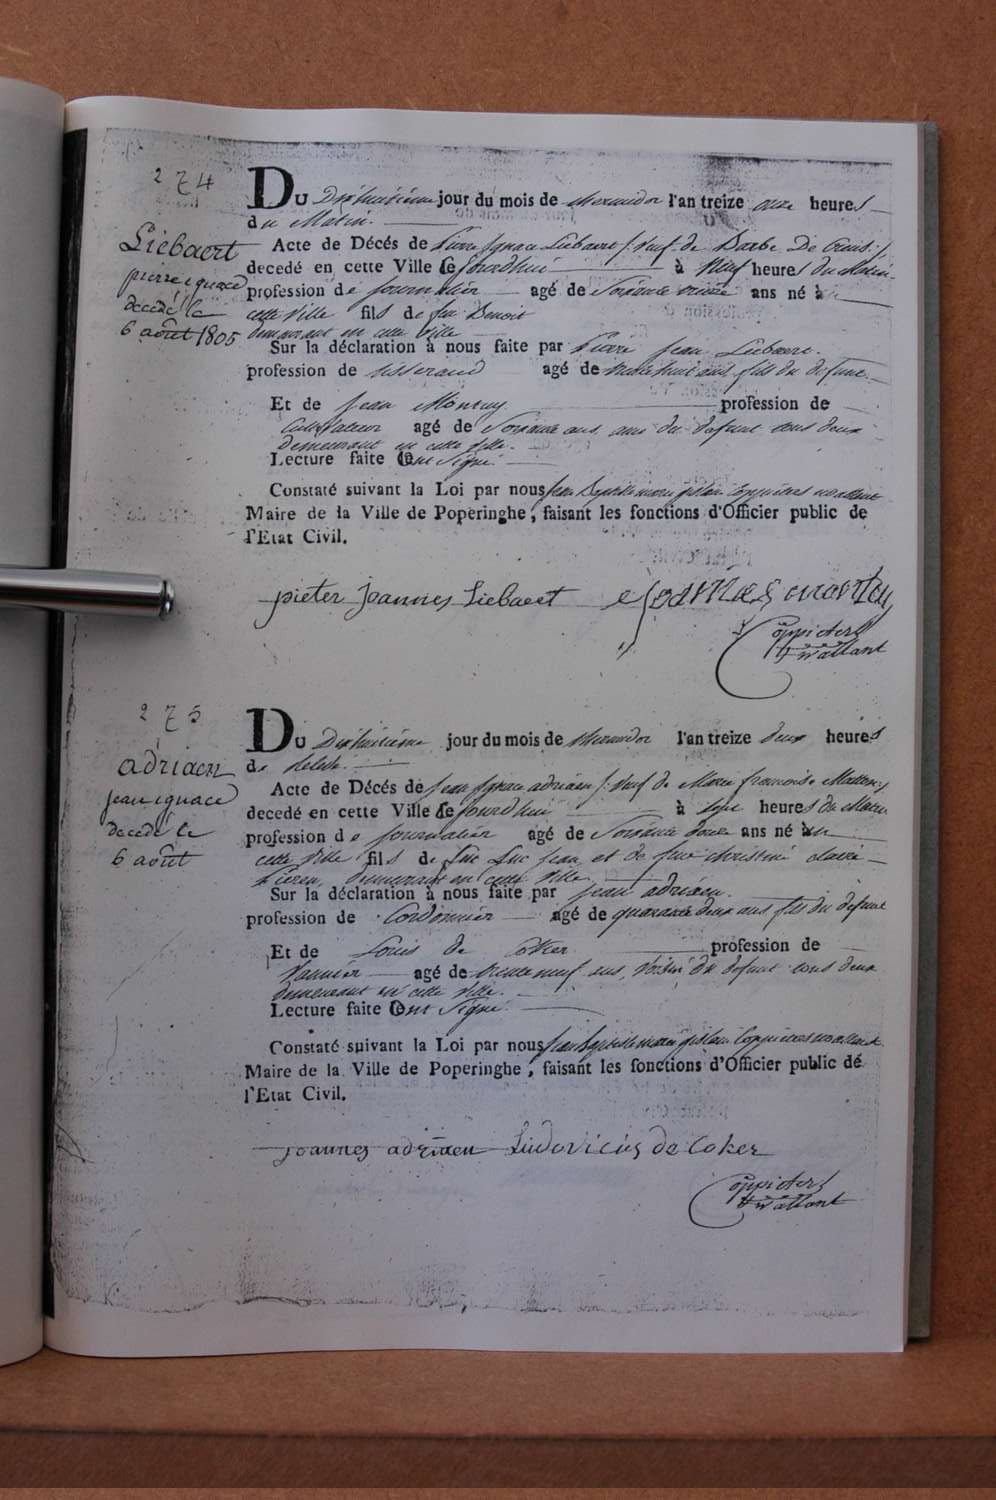 274
Liebaert
pierre ignace
decedé le
6 août 1805
Du Dixhuitieme jour du mois de thermidor l'an treize onze heures
du Matin.
Acte de Décés de Pierre Ignace Liebaert /: veuf de Barbe De
decedé en cette Ville ce Jourdhui à Neuf heures du Matin
profession de journalier agé de Soixante ans né à
cette ville fils de feu Benoit
demeurant en cette ville
Sur la déclaration à nous faite par Pierre Jean Liebaert.
profession de tisserand agé de trente huit ans fils du défunt
Et de Jean profession de
Cultivateur agé de Soixante ans, ami du défunt tous deux
demeurant en cette ville.
Lecture faite ont Signé.
Constaté suivant la Loi par nous Jean Baptiste
Maire de la Ville de Poperinghe, faisant les fonctions d'Officier public de
l'Etat Civil.
pieter Joannes Liebaert
275
adriaen
jean ignace
decedé le
6 août
Du Dixhuitieme jour du mois de thermidor l'an treize deux heures
de relevée.
Acte de Décés de Jean Ignace adriaen /: veuf de Marie francoise
decedé en cette Ville ce Jourdhui à sept heures du Matin
profession de journalier agé de Soixante douze ans né en
cette ville fils de feu Luc Jean et de feue christine claire
demeurant en cette ville.
Sur la déclaration à nous faite par jean adriaen.
profession de Cordonnier agé de quarante deux ans fils du défunt
Et de Louis de Coker profession de
Vannier agé de trente neuf ans, voisin du défunt tous deux
demeurant en cette ville.
Lecture faite ont Signé.
Constaté suivant la Loi par nous Jean Baptiste
Maire de la Ville de Poperinghe, faisant les fonctions d'Officier public de
l'Etat Civil.
joannes adriaen Ludovicus de Coker